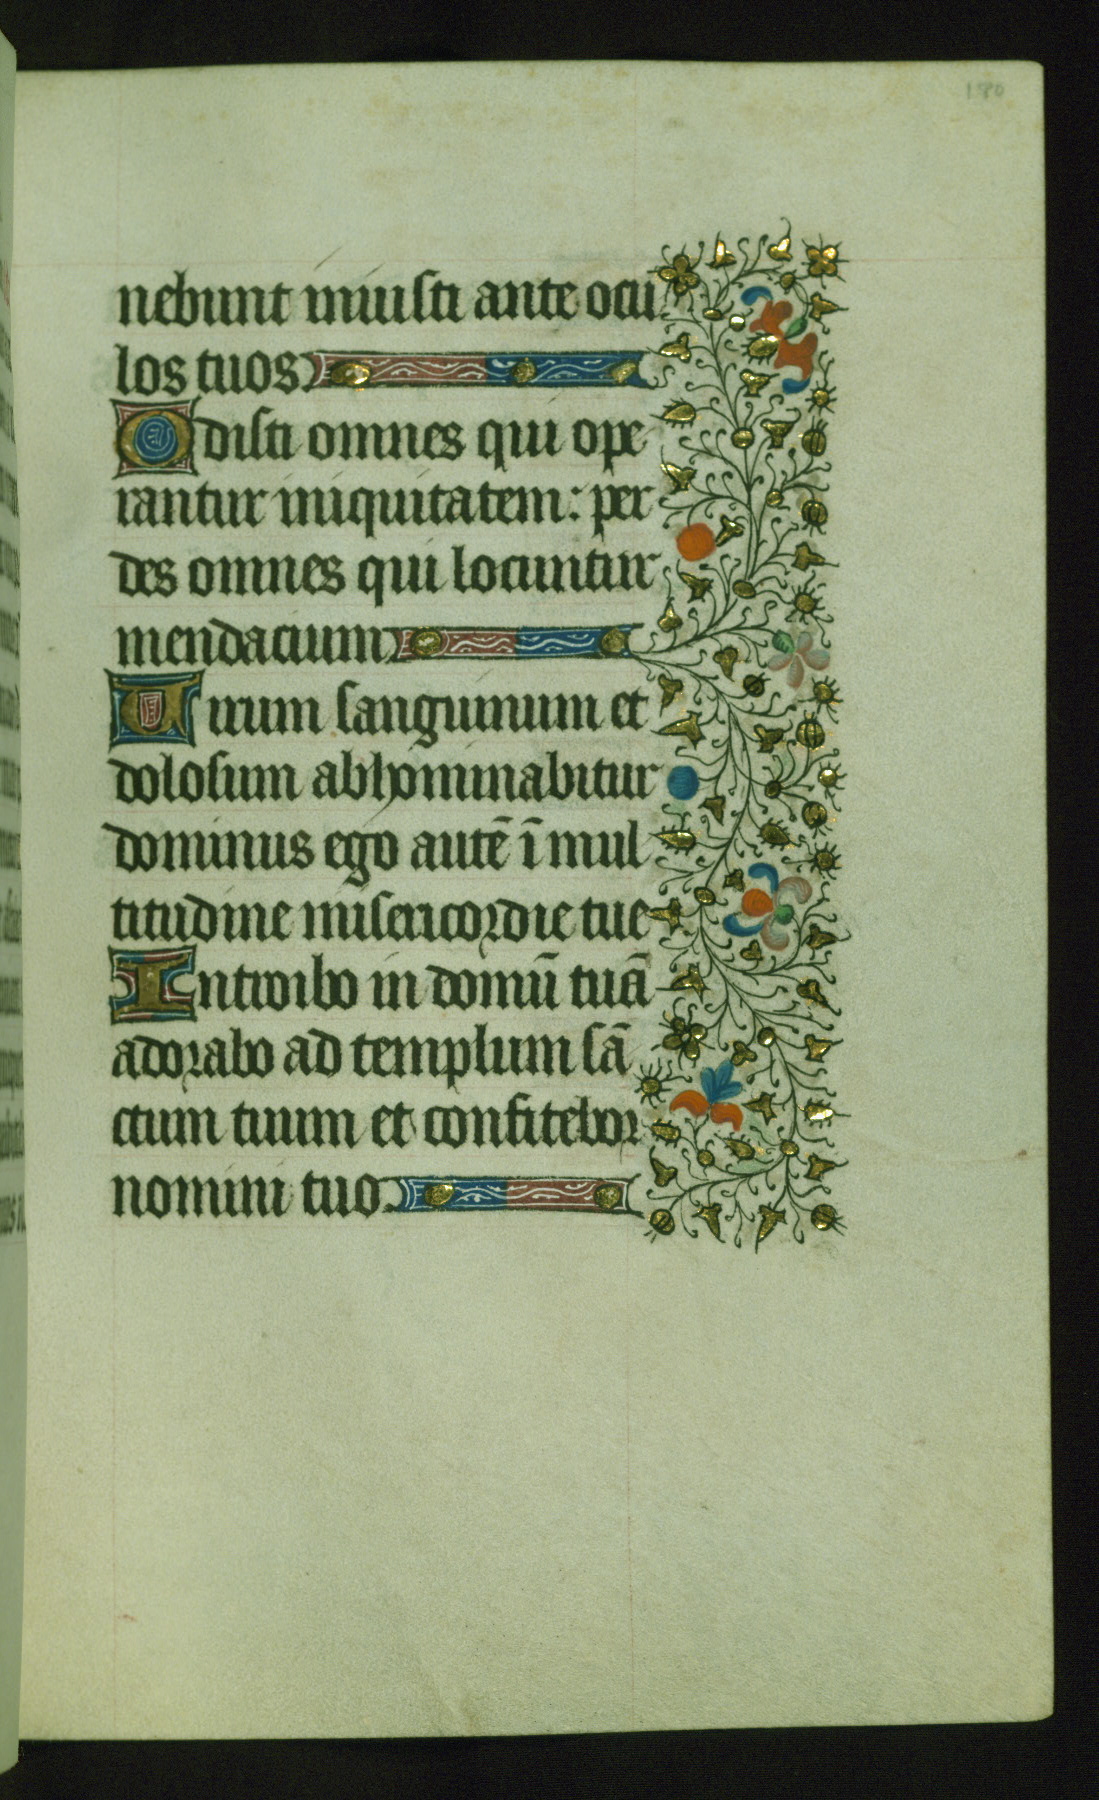 180
nebunt iniusti ante ocu
los tuos
Odisti omnes qui ope
rantur iniquitatem: per
des omnes qui locuntur
mendacium
Uirum sanguinum et
dolosum abhominabitur
dominus ego autē ī mul
titudine misericordie tue
Introibo in domū tuā
adorabo ad templum sā
ctum tuum et confitebor
nomini tuo